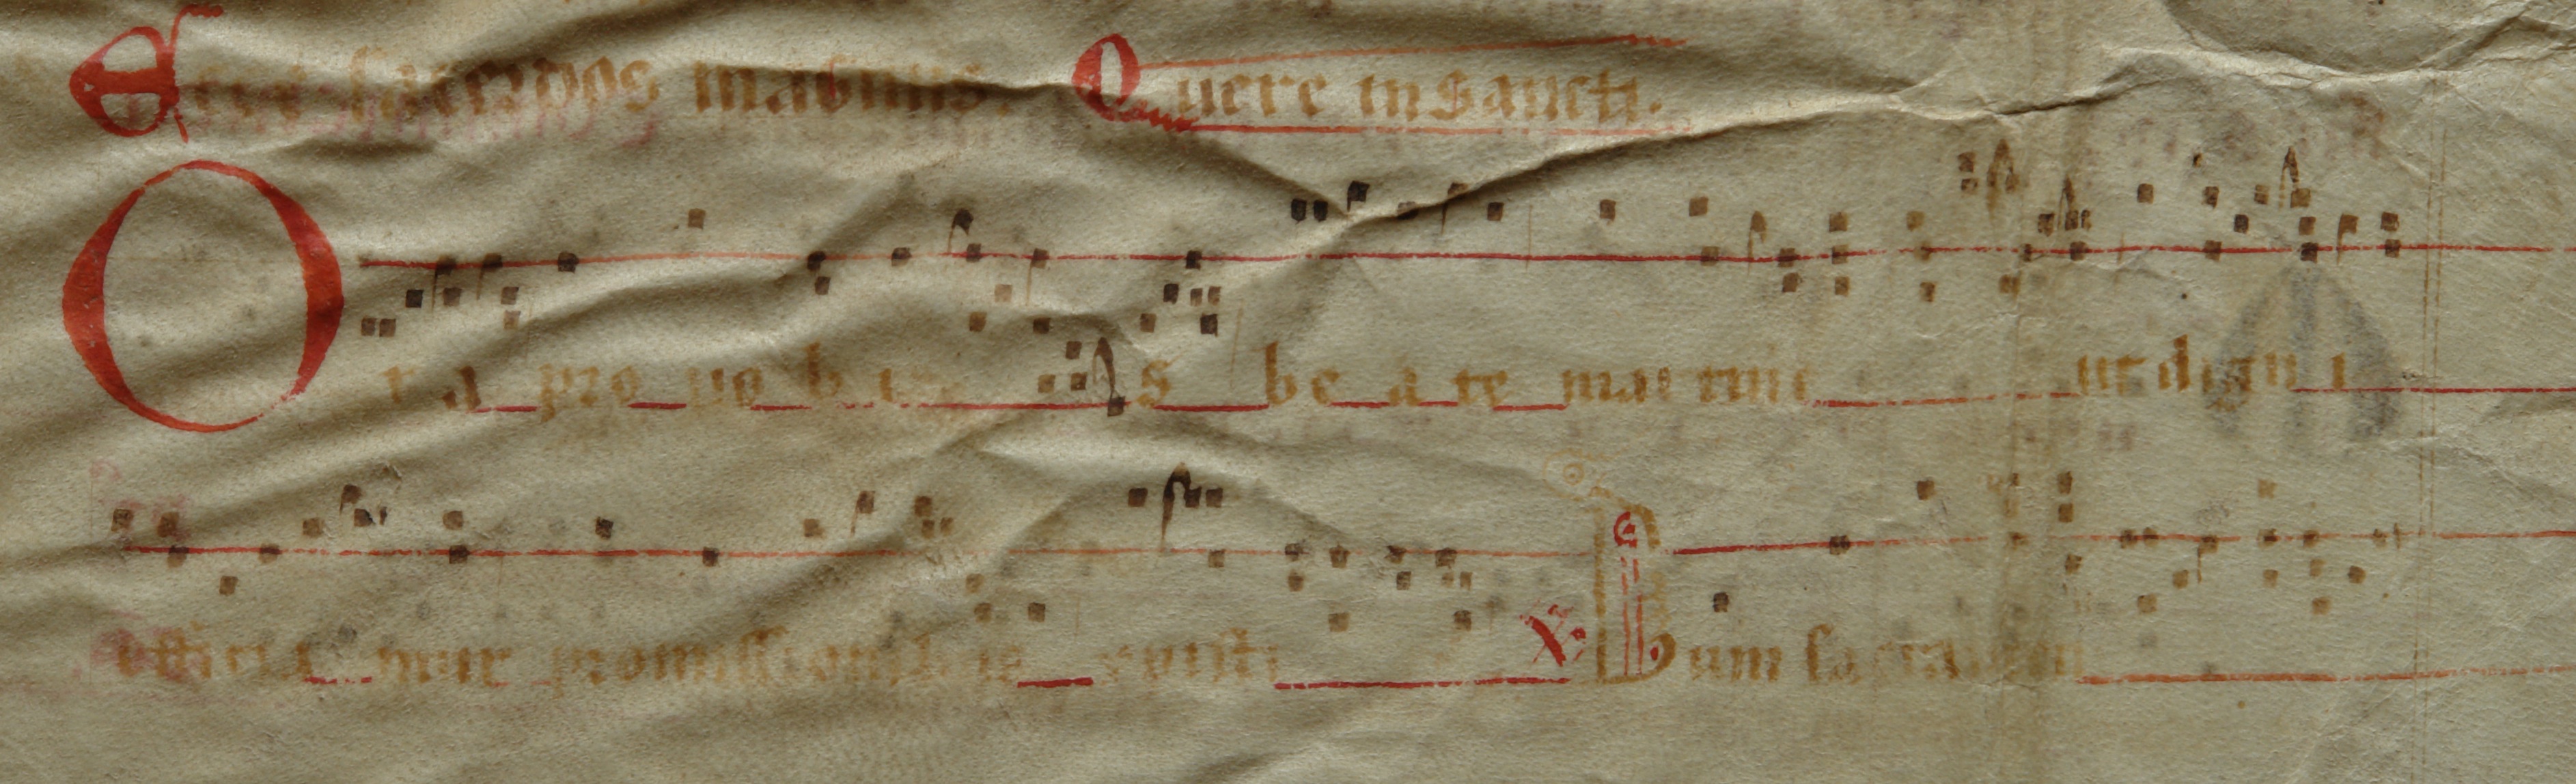 Ecce sacerdos magnus. Quere in sancti.
Ora pro nobis beate martine ut digni
efficiamur promissionibus xpisti ℣ Dum sacramen